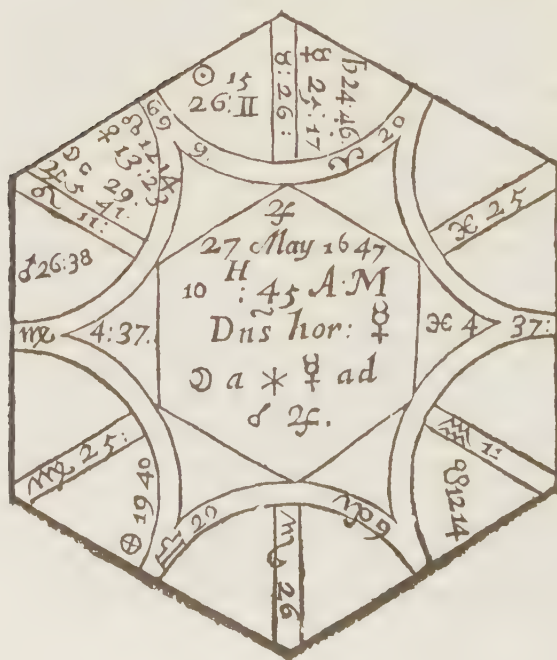 ♃
27 May 1647
10 H : 45 A·M
Dñs hor: ☿
☽ a ⚹ ☿ ad
☌ ♃.
☉ 15
26: II
♉: 26:
☿ 25·17
♄ 24 46
♈ 20
♓ 25
♓ 4 37:
♒ 1:
☋ 12 14
♑ 9
♏ 26
♎ 20
⊕ 19 40
♍ 25:
♍ 4:37.
♂ 26:38
♌ 11:
☽ 29
♃ 5 41
♀ 13:23
☊ 12 14
♋ 9